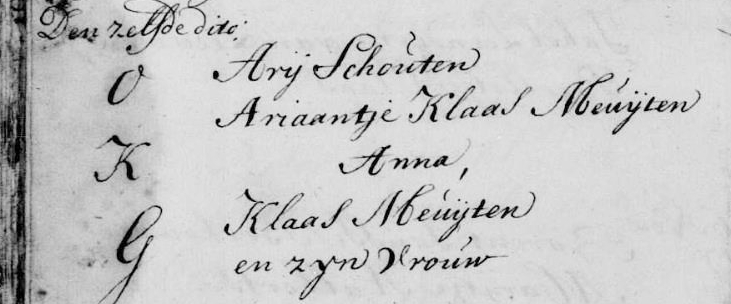 Den zelfde dito.
O Arij Schouten
Ariaantje Klaas Meuÿten
K Anna,
G Klaas Meuÿten
en zyn Vrouw